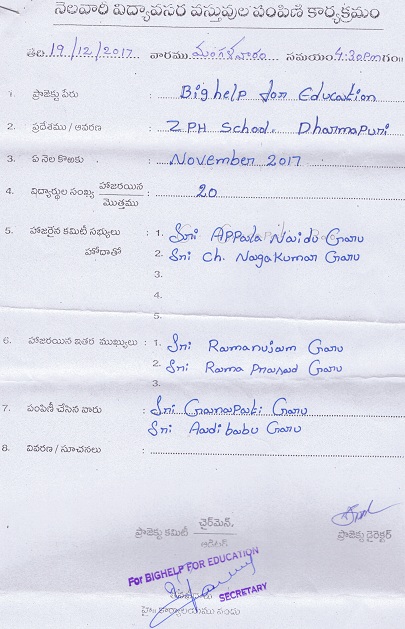 నెలవారి విద్యావసర వస్తువుల పంపిణి కార్యక్రమం
తేది 19/12/2017 వారము మంగళవారం సమయం 4:30pm గం॥
1. ప్రాజెక్టు పేరు : Bighelp for Education
2. ప్రదేశము / ఆవరణ : ZPH School, Dharmapuri
3. ఏ నెల కొఱకు : November 2017
4. విద్యార్థుల సంఖ్య హాజరయిన / మొత్తము : 20
5. హాజరైన కమిటీ సభ్యులు : 1. Sri Appala Naidu Garu
హోదాతో 2. Sri Ch. Nagakumar Garu
3.
4.
5.
6. హాజరయిన ఇతర ముఖ్యులు : 1. Sri Ramanujam Garu
2. Sri Rama Prasad Garu
3.
7. పంపిణీ చేసిన వారు : Sri Ganapati Garu
Sri Aadibabu Garu
8. వివరణ / సూచనలు :
ప్రాజెక్టు కమిటీ ఛైర్మెన్. ప్రాజెక్టు డైరెక్టర్
For BIGHELP FOR EDUCATION
SECRETARY